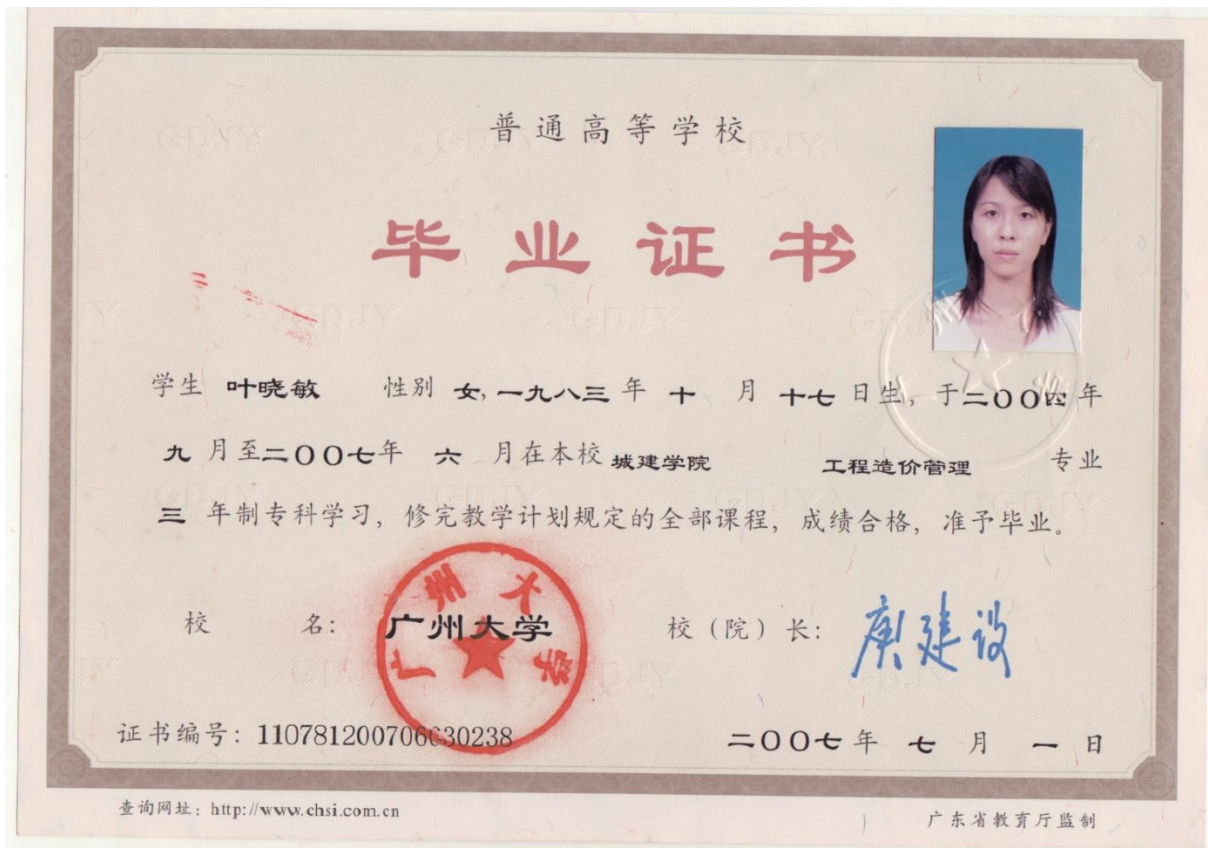 普通高等学校
毕业证书
学生 叶晓敏 性别 女, 一九八三 年 十 月 十七 日生, 于二〇〇四年
九 月至二〇〇七年 六 月在本校 城建学院 工程造价管理 专业
三 年制专科学习, 修完教学计划规定的全部课程, 成绩合格, 准予毕业。
校 名: 广州大学 校(院)长: 庾建设
广州大学
证书编号: 110781200706630238 二〇〇七年 七 月 一 日
查询网址: http://www.chsi.com.cn 广东省教育厅监制